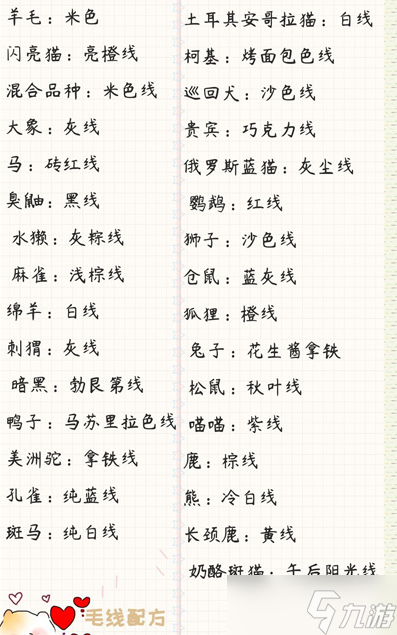 羊毛：米色
闪亮猫：亮橙线
混合品种：米色线
大象：灰线
马：砖红线
臭鼬：黑线
水獭：灰粽线
麻雀：浅棕线
绵羊：白线
刺猬：灰线
暗黑：勃艮第线
鸭子：马苏里拉色线
美洲驼：拿铁线
孔雀：纯蓝线
斑马：纯白线
毛线配方
土耳其安哥拉猫：白线
柯基：烤面包色线
巡回犬：沙色线
贵宾：巧克力线
俄罗斯蓝猫：灰尘线
鹦鹉：红线
狮子：沙色线
仓鼠：蓝灰线
狐狸：橙线
兔子：花生酱拿铁
松鼠：秋叶线
喵喵：紫线
鹿：棕线
熊：冷白线
长颈鹿：黄线
奶酪斑猫：午后阳光线
九游